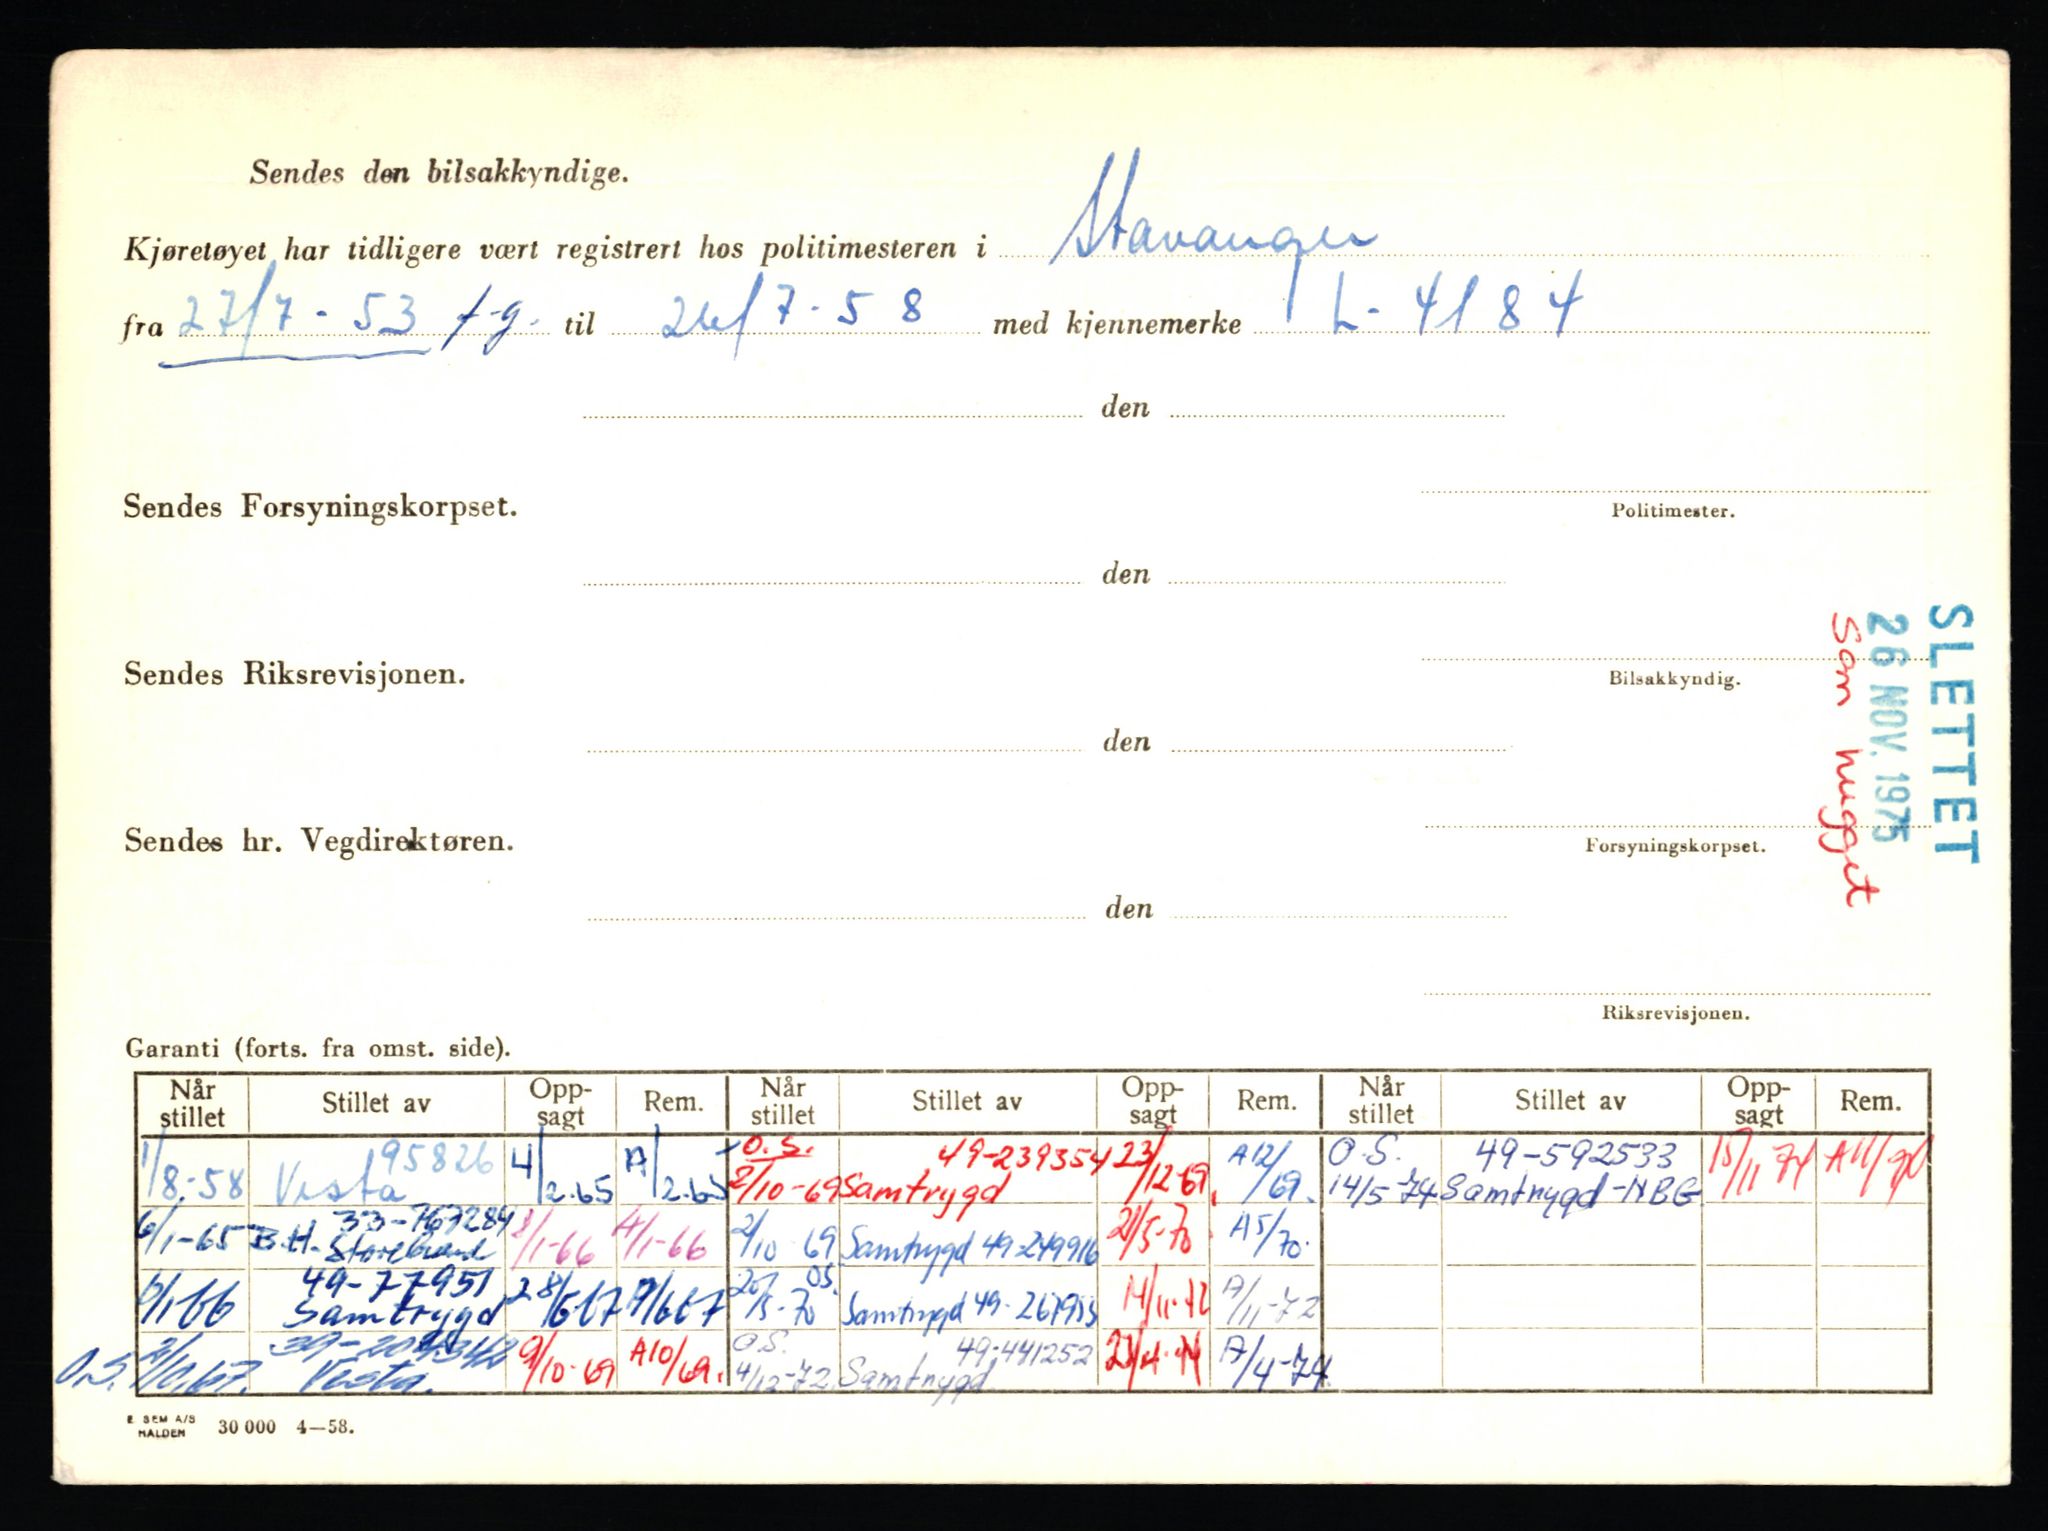 Sendes den bilsakkyndige.
Kjøretøyet har tidligere vært registrert hos politimesteren i Stavanger
fra 27/7-53 f-g. til 24/7-58 med kjennemerke L-4184
den
Sendes Forsyningskorpset.
Politimester.
den
Sendes Riksrevisjonen.
Bilsakkyndig.
den
Sendes hr. Vegdirektøren.
Forsyningskorpset.
den
Riksrevisjonen.
SLETTET
26 NOV. 1975
Som hugget
Garanti (forts. fra omst. side).
Når stillet Stillet av Opp-sagt Rem. Når stillet Stillet av Opp-sagt Rem. Når stillet Stillet av Opp-sagt Rem.
1/8-58 Vesta 95826 4/2.65 A/2.65 O.S. 2/10-69 49-239354 Samtrygd 23/12-69. A12/69. O.S. 14/5-74 49-592533 Samtrygd-NBG 15/11 74 A11/
6/1-65 B.H. 33-767284 Storebrand 8/1-66 A/1-66 2/10 69 Samtrygd 49-249916 21/5-70 A5/70.
1/1-66 49-77951 Samtrygd 28/6.67 A/6 67 OS. 5-70 Samtrygd 49- 14/11-72 A/11-72
O.S. 2/10.67. Vesta. 9/10-69 A10/69. O.S. 4/12-72 49-441252 Samtrygd 23/4-74 A/4-74
E SEM A/S HALDEN 30 000 4—58.